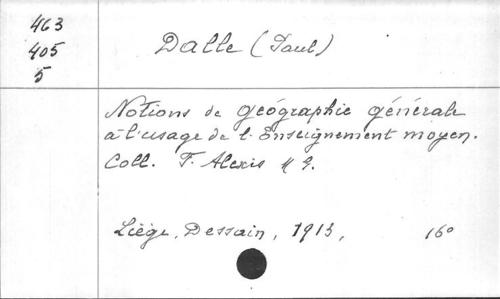 463
405
5
Dalle (Paul)
Notions de géographie générale
à l'usage de l'Enseignement moyen.
Coll. F. Alexis
Liège, Dessain, 1913, 16°